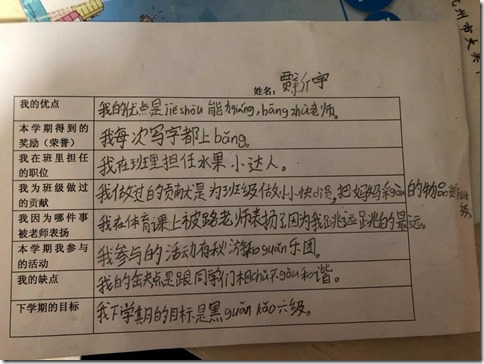 州市大关
姓名：贾
我的优点 我的优点是jiē shōu能力qiáng，bāng zhù老师。
本学期得到的
奖励（荣誉） 我每次写字都上bǎng。
我在班里担任
的职位 我在班里担任水果小达人。
我为班级做过
的贡献 我做过的贡献是为班级做小小快递，把妈妈采gòu的物品
级。
我因为哪件事
被老师表扬 我在体育课上被路老师表扬了因为我跳远跳的最远。
本学期我参与
的活动 我参与的活动有秋游和guǎn乐团。
我的缺点 我的缺点是跟同学们相chǔ不gòu和谐。
下学期的目标 我下学期的目标是黑guǎn kǎo六级。